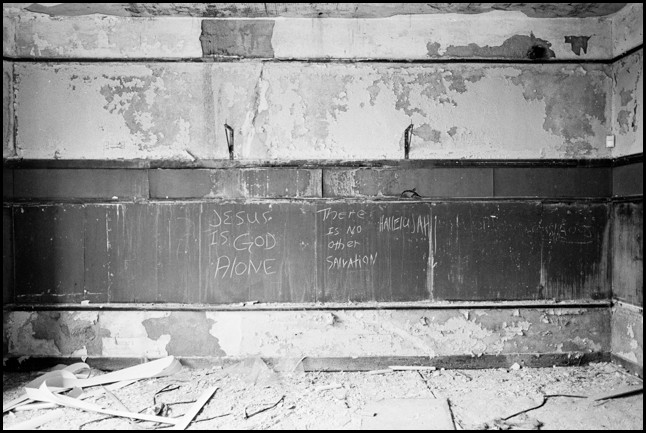 JESUS
IS GOD
AlONE
There
IS NO
other
SAlVATION
HAllElUJAH